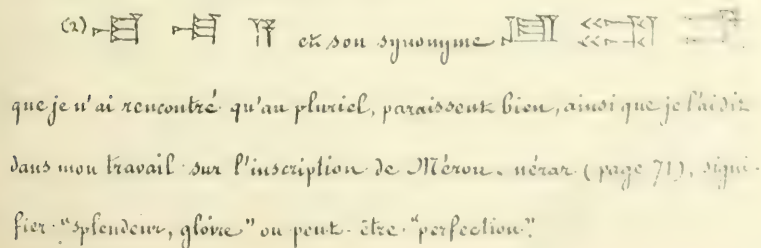 (2) et son synonyme
que je n'ai rencontré qu'au pluriel, paraissent bien, ainsi que je l'ai dit
dans mon travail sur l'inscription de Méron-nérar (page 71), signi-
fier "splendeur, gloire" ou peut-être "perfection".